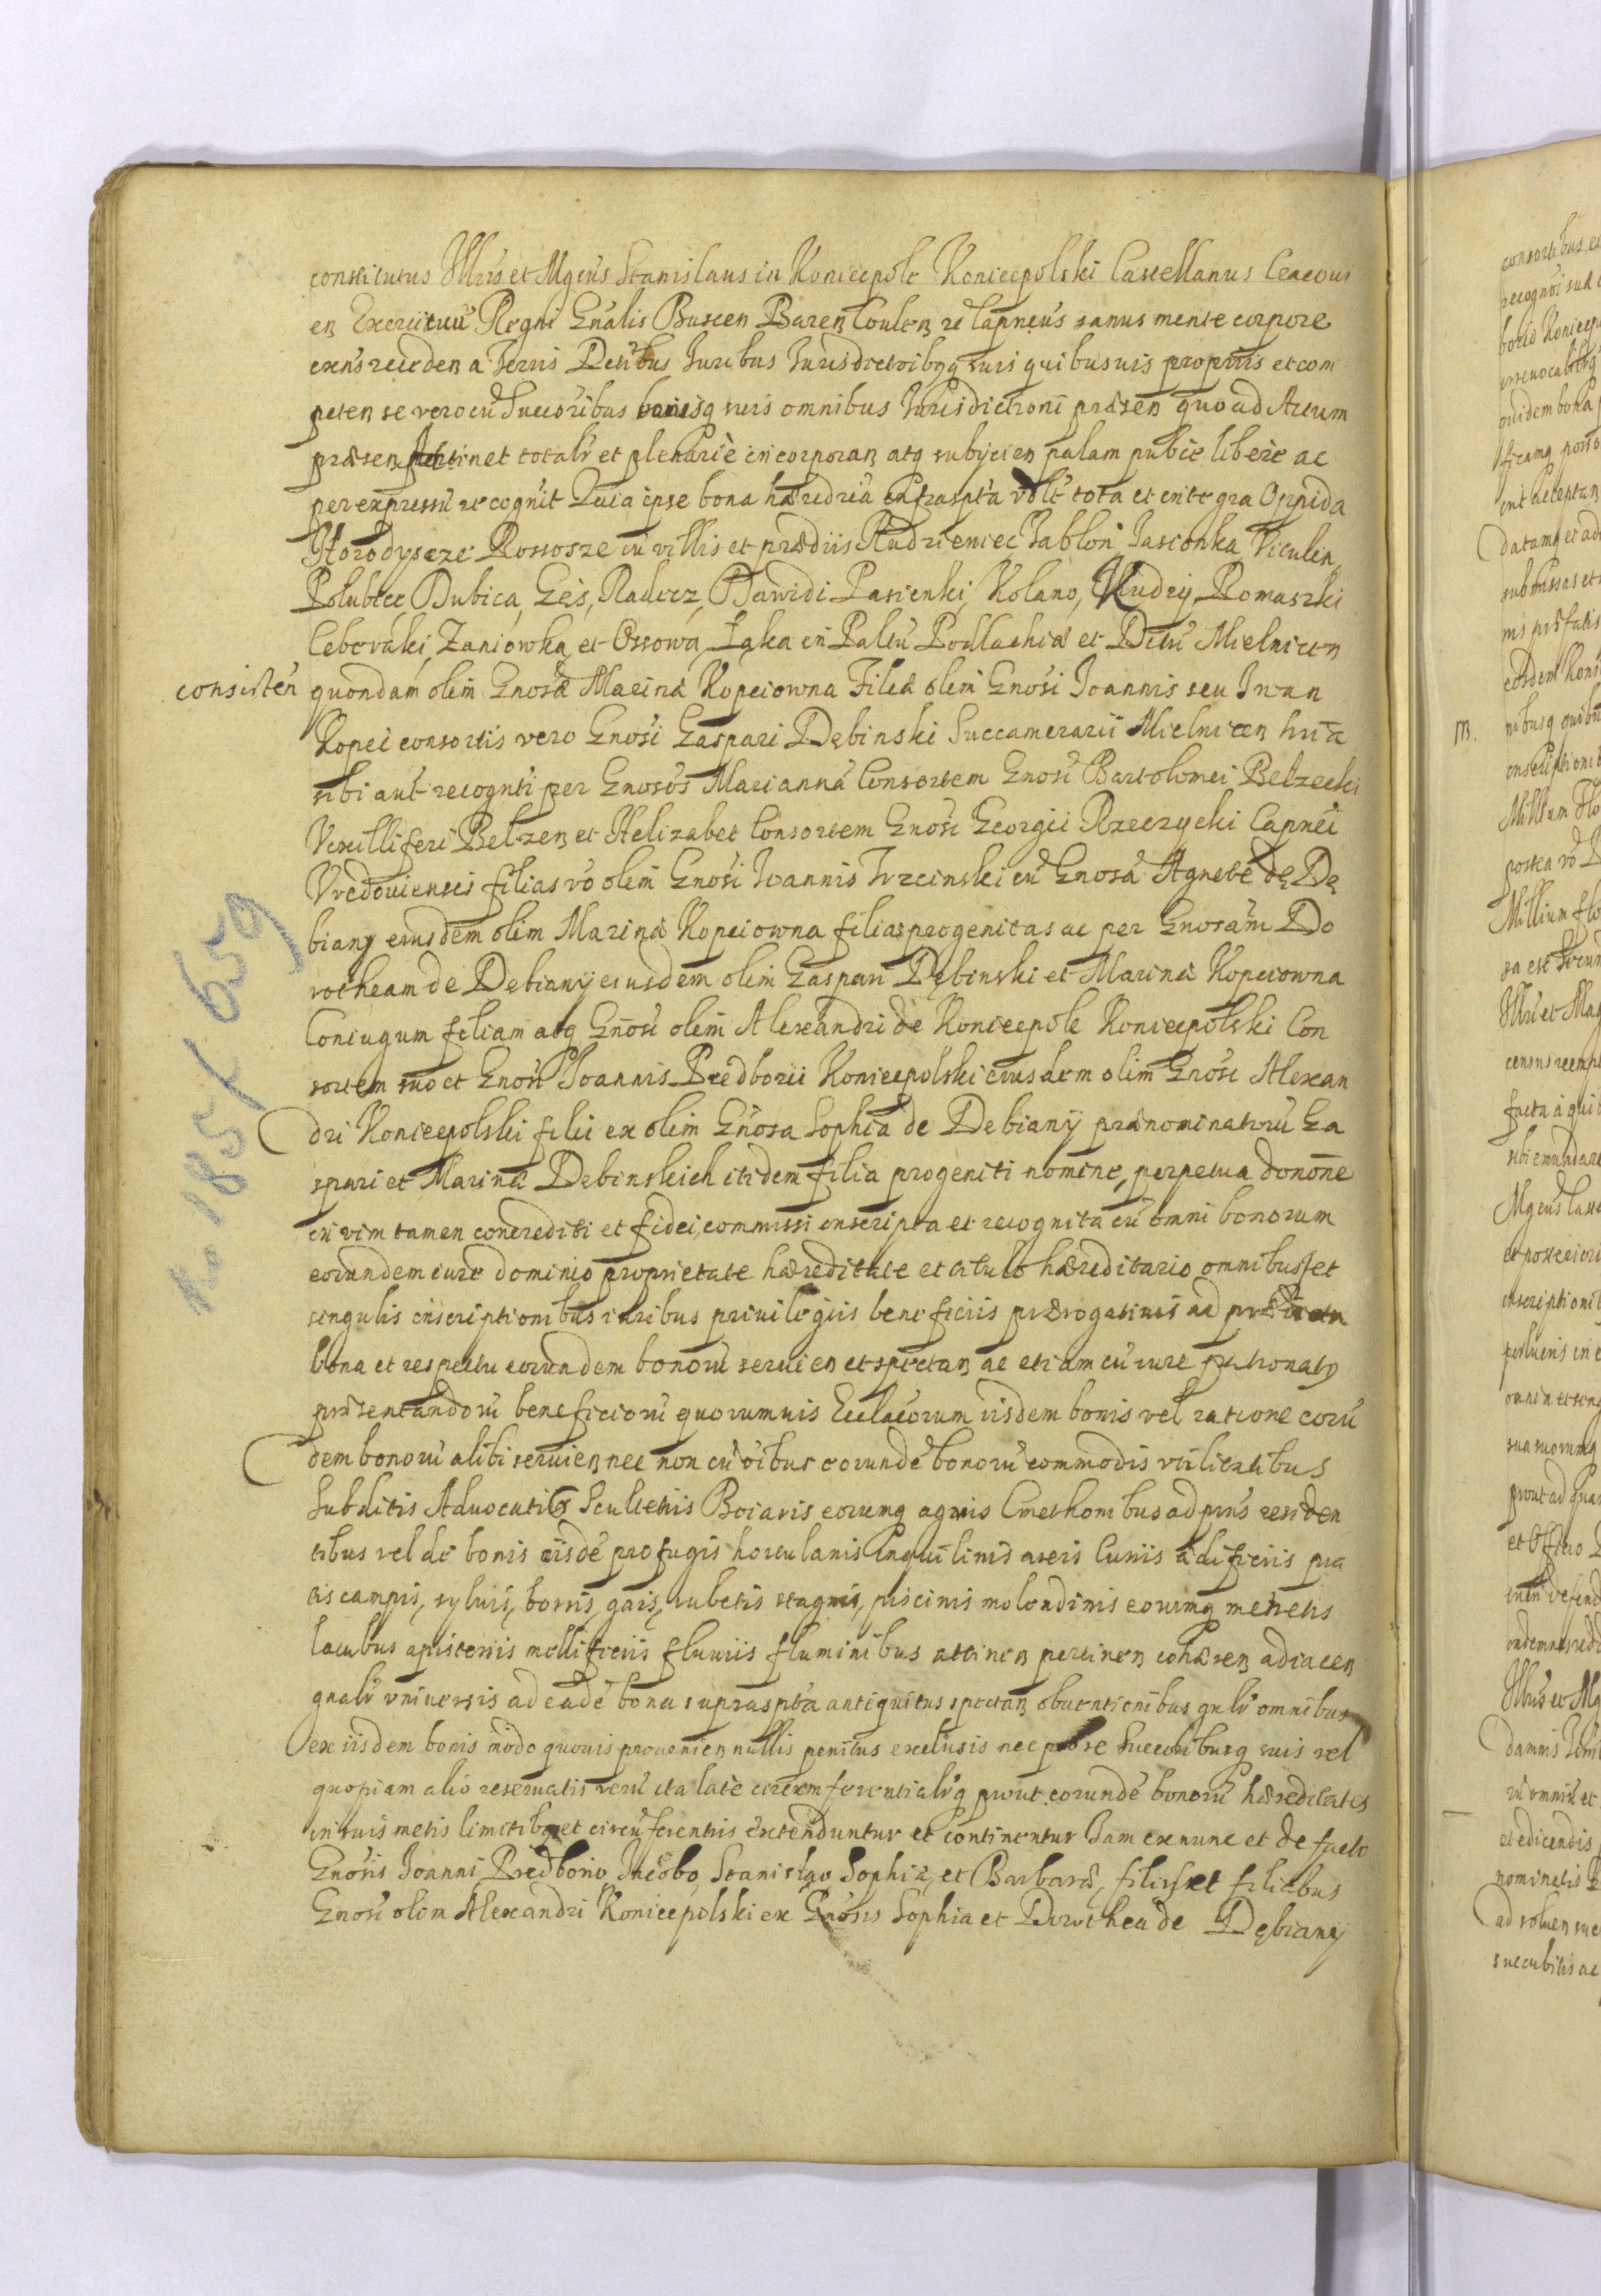 constitutus Illrīs et Mgcūs Stanislaus in Koniecpole Koniecpolski Castellanus Cracoui
en Exercituū Regni Gnalis Buscen Baren Coulen zc Capneūs sanus mente corpore
exens recēden a Terris Distibus Iuribus Iurisdictoibqq suis quibusuis proprijs et com
peten se vero cū Succoribus bonisq suis omnibus Iurisdictioni præsen quo ad Actum
præsen attinet totalr et plenariè incorporan atq subijcien palam publce liberè ac
per expressū recognit Quia ipse bona hæredria infraspta vdlt tota et integra Oppida
Horodyszcze Rossosze cū villis et prædiis Rudzieniec Jablon Jasionka Viculen
Polubice Dubica Gęś, Radcz, Dawidi Pasienki, Kolano, Kudry Romaszki
Ceberaki, Zaniowka et Ossowa Łąka in Paltu Podlachiæ et Dictū Mielnicen
consisten quondam olim Gnosæ Marinæ Kopciowna Filiæ olim Gnosi Ioannis seu Iwan
Kopci consortis vero Gnosi Gaspari Dębinski Succamerarii Mielnicen
sibi aut recogniti per Gnosos Mariannā Consortem Gnosi Bartolomei Belzecki
Vexilliferi Belzen et Helizabet Consortem Gnosi Georgii Rzeczycki Capnei
Vrzedouiensis filias vo olim Gnosi Ioannis Trzcinski cū Gnosa Agnete de Dę
biany eiusdem olim Marinæ Kopciowna filias progenitas ac per Gnosam Do
rotheam de Debiany eiusdem olim Gaspari Dębinski et Marinæ Kopciowna
Coniugum filiam atq Gnosi olim Alexandri de Koniecpole Koniecpolski Con
sortem suo et Gnosi Ioannis Predborii Koniecpolski eiusdem olim Gnosi Alexan
dri Koniecpolski filii ex olim Gnosa Sophia de Debiany prænominatorū Ga
spari et Marinæ Debinskich itidem filia progeniti nomine, perpetua donone
in vim tamen concrediti et fidei commissi inscripta et recognita cū omni bonorum
eorundem iure dominio proprietate hæreditate et titulo hæreditario omnibus et
singulis inscriptionibus iuribus priuilegiis beneficiis prærogatiuis ad prædicta
bona et respectu eorundem bonorū seruien et spectan ac etiam cū iure patronatq
præsentandorū beneficiorū quorumuis Ecclacorum iisdem bonis vel ratione eorū
dem bonorū alibi seruien nec non cū oibus eorundē bonorū commodis vtilitatibus
Subditis Aduocatis Scultetiis Boiaris eorumq agris Cmethonibus ad prns residen
tibus vel de bonis iisdē profugis hortulanis Inquilinis areis Curiis ædificiis pra
tis campis, syluis, borris, gais, rubetis stagnis, piscinis molendinis eorumq metretis
lacubus apisteriis mellificiis fluuiis fluminibus attinen pertinen cohæren adiacen
gnalr vniuersis ad eadē bona supraspta antiquitus spectan obuentionibus gnlr omnibus
ex iisdem bonis modo quouis prouenien nullis penitus exclusis nec pro se Succoribusq suis vel
quopiam alio reseruatis verū ita latè circumferentialrq prout eorundē bonorū hæreditates
in suis metis limitibq et circūferentiis extenduntur et continentur Iam ex nunc et de facto
Gnosis Ioanni Predborio, Iacobo Stanislao Sophiæ, et Barbaræ, filiis et filiabus
Gnosi olim Alexandri Koniecpolski ex Gnosis Sophia et Dorothea de Dębiany
No 185 / 659